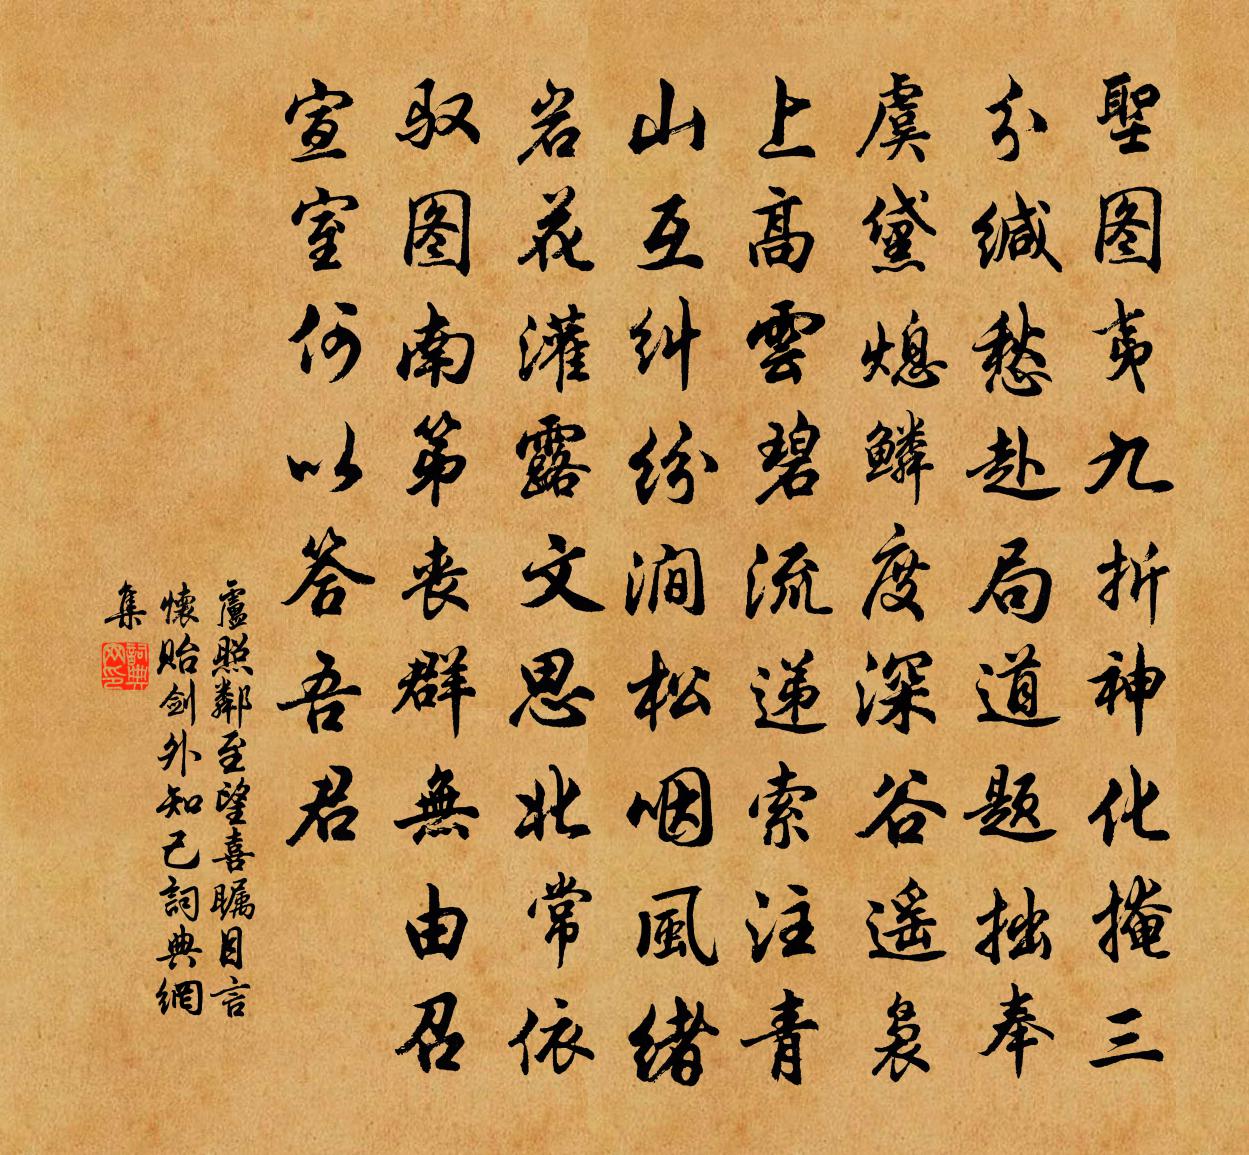 聖图夷九折神化掩三
分缄愁赴局道题拙奉
虞黛熄鳞度深谷遥袅
上高雲碧流递索注青
山互纠纷涧松咽風緒
岩花灌露文思北常依
驭图南第丧群無由召
宣室何以答吾君
盧照鄰至望喜瞩目言
懷贻剑外知己詞典網
集
詞典网印